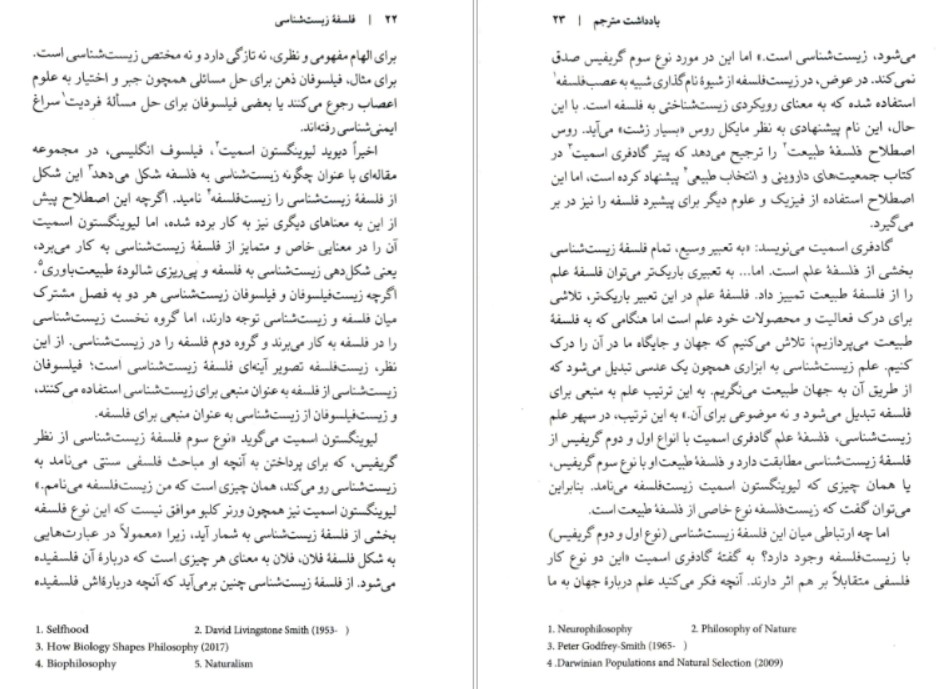 ۲۲ | فلسفهٔ زیست‌شناسی
برای الهام مفهومی و نظری، نه تازگی دارد و نه مختص زیست‌شناسی است.
برای مثال، فیلسوفان ذهن برای حل مسائلی همچون جبر و اختیار به علوم
اعصاب رجوع می‌کنند یا بعضی فیلسوفان برای حل مسألهٔ فردیت۱ سراغ
ایمنی‌شناسی رفته‌اند.
اخیراً دیوید لیوینگستون اسمیت۲، فیلسوف انگلیسی، در مجموعه
مقاله‌ای با عنوان چگونه زیست‌شناسی به فلسفه شکل می‌دهد۳ این شکل
از فلسفهٔ زیست‌شناسی را زیست‌فلسفه۴ نامید. اگرچه این اصطلاح پیش
از این به معناهای دیگری نیز به کار برده شده، اما لیوینگستون اسمیت
آن را در معنایی خاص و متمایز از فلسفهٔ زیست‌شناسی به کار می‌برد،
یعنی شکل‌دهی زیست‌شناسی به فلسفه و پی‌ریزی شالودهٔ طبیعت‌باوری۵.
اگرچه زیست‌فیلسوفان و فیلسوفان زیست‌شناسی هر دو به فصل مشترک
میان فلسفه و زیست‌شناسی توجه دارند، اما گروه نخست زیست‌شناسی
را در فلسفه به کار می‌برند و گروه دوم فلسفه را در زیست‌شناسی. از این
نظر، زیست‌فلسفه تصویر آینه‌ای فلسفهٔ زیست‌شناسی است؛ فیلسوفان
زیست‌شناسی از فلسفه به عنوان منبعی برای زیست‌شناسی استفاده می‌کنند،
و زیست‌فیلسوفان از زیست‌شناسی به عنوان منبعی برای فلسفه.
لیوینگستون اسمیت می‌گوید «نوع سوم فلسفهٔ زیست‌شناسی از نظر
گریفیس، که برای پرداختن به آنچه او مباحث فلسفی سنتی می‌نامد به
زیست‌شناسی رو می‌کند، همان چیزی است که من زیست‌فلسفه می‌نامم.»
لیوینگستون اسمیت نیز همچون ورنر کلبو موافق نیست که این نوع فلسفه
بخشی از فلسفهٔ زیست‌شناسی به شمار آید، زیرا «معمولاً در عبارت‌هایی
به شکل فلسفهٔ فلان، فلان به معنای هر چیزی است که دربارهٔ آن فلسفیده
می‌شود. از فلسفهٔ زیست‌شناسی چنین برمی‌آید که آنچه درباره‌اش فلسفیده
1. Selfhood 2. David Livingstone Smith (1953- )
3. How Biology Shapes Philosophy (2017)
4. Biophilosophy 5. Naturalism
یادداشت مترجم | ۲۳
می‌شود، زیست‌شناسی است.» اما این در مورد نوع سوم گریفیس صدق
نمی‌کند. در عوض، در زیست‌فلسفه از شیوهٔ نام‌گذاری شبیه به عصب‌فلسفه۱
استفاده شده که به معنای رویکردی زیست‌شناختی به فلسفه است. با این
حال، این نام پیشنهادی به نظر مایکل روس «بسیار زشت» می‌آید. روس
اصطلاح فلسفهٔ طبیعت۲ را ترجیح می‌دهد که پیتر گادفری اسمیت۳ در
کتاب جمعیت‌های داروینی و انتخاب طبیعی۴ پیشنهاد کرده است، اما این
اصطلاح استفاده از فیزیک و علوم دیگر برای پیشبرد فلسفه را نیز در بر
می‌گیرد.
گادفری اسمیت می‌نویسد: «به تعبیر وسیع، تمام فلسفهٔ زیست‌شناسی
بخشی از فلسفهٔ علم است. اما... به تعبیری باریک‌تر می‌توان فلسفهٔ علم
را از فلسفهٔ طبیعت تمییز داد. فلسفهٔ علم در این تعبیر باریک‌تر، تلاشی
برای درک فعالیت و محصولات خود علم است اما هنگامی که به فلسفهٔ
طبیعت می‌پردازیم؛ تلاش می‌کنیم که جهان و جایگاه ما در آن را درک
کنیم. علم زیست‌شناسی به ابزاری همچون یک عدسی تبدیل می‌شود که
از طریق آن به جهان طبیعت می‌نگریم. به این ترتیب علم به منبعی برای
فلسفه تبدیل می‌شود و نه موضوعی برای آن.» به این ترتیب، در سپهر علم
زیست‌شناسی، فلسفهٔ علم گادفری اسمیت با انواع اول و دوم گریفیس از
فلسفهٔ زیست‌شناسی مطابقت دارد و فلسفهٔ طبیعت او با نوع سوم گریفیس،
یا همان چیزی که لیوینگستون اسمیت زیست‌فلسفه می‌نامد. بنابراین
می‌توان گفت که زیست‌فلسفه نوع خاصی از فلسفهٔ طبیعت است.
اما چه ارتباطی میان این فلسفهٔ زیست‌شناسی (نوع اول و دوم گریفیس)
با زیست‌فلسفه وجود دارد؟ به گفتهٔ گادفری اسمیت «این دو نوع کار
فلسفی متقابلاً بر هم اثر دارند. آنچه فکر می‌کنید علم دربارهٔ جهان به ما
1. Neurophilosophy 2. Philosophy of Nature
3. Peter Godfrey-Smith (1965- )
4 .Darwinian Populations and Natural Selection (2009)